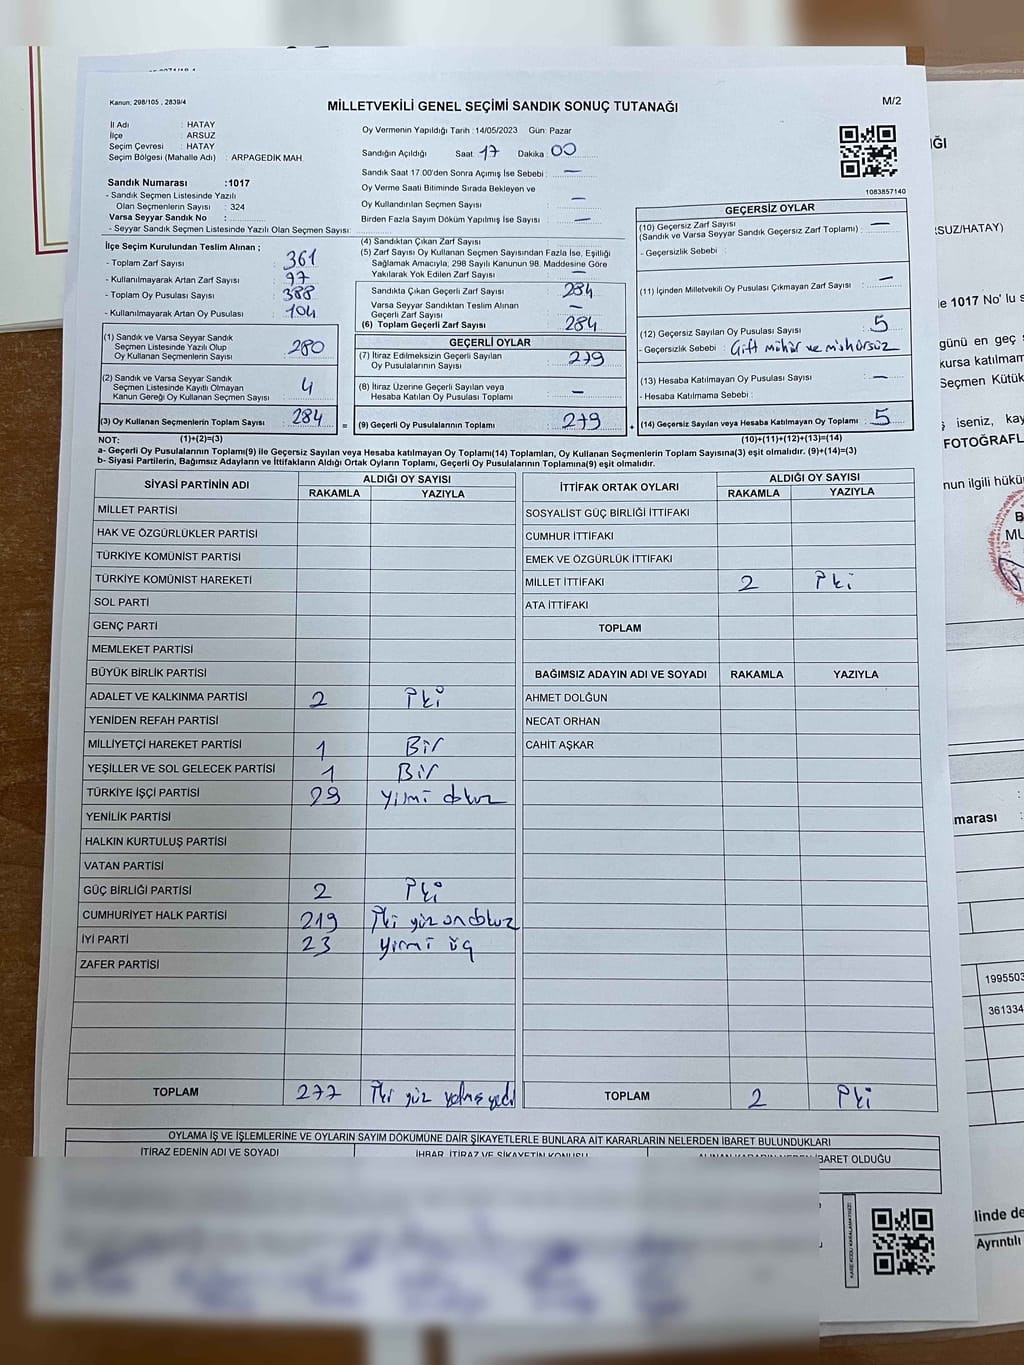 Kanun: 298/105 , 2839/4
MİLLETVEKİLİ GENEL SEÇİMİ SANDIK SONUÇ TUTANAĞI
M/2
İl Adı : HATAY
İlçe : ARSUZ
Seçim Çevresi : HATAY
Seçim Bölgesi (Mahalle Adı) : ARPAGEDİK MAH.
Sandık Numarası :1017
- Sandık Seçmen Listesinde Yazılı
Olan Seçmenlerin Sayısı : 324
Varsa Seyyar Sandık No :
- Seyyar Sandık Seçmen Listesinde Yazılı Olan Seçmen Sayısı:
Oy Vermenin Yapıldığı Tarih : 14/05/2023 Gün: Pazar
Sandığın Açıldığı Saat : 17 Dakika : 00
Sandık Saat 17.00'den Sonra Açımış İse Sebebi : —
Oy Verme Saati Bitiminde Sırada Bekleyen ve
Oy Kullandırılan Seçmen Sayısı : —
Birden Fazla Sayım Döküm Yapılmış İse Sayısı : —
1083857140
İlçe Seçim Kurulundan Teslim Alınan ;
- Toplam Zarf Sayısı : 361
- Kullanılmayarak Artan Zarf Sayısı : 97
- Toplam Oy Pusulası Sayısı : 388
- Kullanılmayarak Artan Oy Pusulası : 104
(1) Sandık ve Varsa Seyyar Sandık
Seçmen Listesinde Yazılı Olup
Oy Kullanan Seçmenlerin Sayısı : 280
(2) Sandık ve Varsa Seyyar Sandık
Seçmen Listesinde Kayıtlı Olmayan
Kanun Gereği Oy Kullanan Seçmen Sayısı : 4
(3) Oy Kullanan Seçmenlerin Toplam Sayısı : 284
(4) Sandıktan Çıkan Zarf Sayısı :
(5) Zarf Sayısı Oy Kullanan Seçmen Sayısından Fazla İse, Eşitliği
Sağlamak Amacıyla, 298 Sayılı Kanunun 98. Maddesine Göre
Yakılarak Yok Edilen Zarf Sayısı : —
Sandıkta Çıkan Geçerli Zarf Sayısı : 284
Varsa Seyyar Sandıktan Teslim Alınan
Geçerli Zarf Sayısı : —
(6) Toplam Geçerli Zarf Sayısı : 284
GEÇERLİ OYLAR
(7) İtiraz Edilmeksizin Geçerli Sayılan
Oy Pusulalarının Sayısı : 279
(8) İtiraz Üzerine Geçerli Sayılan veya
Hesaba Katılan Oy Pusulası Toplamı : —
= (9) Geçerli Oy Pusulalarının Toplamı : 279 +
GEÇERSİZ OYLAR
(10) Geçersiz Zarf Sayısı
(Sandık ve Varsa Seyyar Sandık Geçersiz Zarf Toplamı) : —
- Geçersizlik Sebebi :
(11) İçinden Milletvekili Oy Pusulası Çıkmayan Zarf Sayısı : —
(12) Geçersiz Sayılan Oy Pusulası Sayısı : 5
- Geçersizlik Sebebi : Çift mühür ve mühürsüz
(13) Hesaba Katılmayan Oy Pusulası Sayısı : —
- Hesaba Katılmama Sebebi :
(14) Geçersiz Sayılan veya Hesaba Katılmayan Oy Toplamı : 5
NOT: (1)+(2)=(3) (10)+(11)+(12)+(13)=(14)
a- Geçerli Oy Pusulalarının Toplamı(9) ile Geçersiz Sayılan veya Hesaba katılmayan Oy Toplamı(14) Toplamları, Oy Kullanan Seçmenlerin Toplam Sayısına(3) eşit olmalıdır. (9)+(14)=(3)
b- Siyasi Partilerin, Bağımsız Adayların ve İttifakların Aldığı Ortak Oyların Toplamı, Geçerli Oy Pusulalarının Toplamına(9) eşit olmalıdır.
SİYASİ PARTİNİN ADI ALDIĞI OY SAYISI
RAKAMLA YAZIYLA
MİLLET PARTİSİ
HAK VE ÖZGÜRLÜKLER PARTİSİ
TÜRKİYE KOMÜNİST PARTİSİ
TÜRKİYE KOMÜNİST HAREKETİ
SOL PARTİ
GENÇ PARTİ
MEMLEKET PARTİSİ
BÜYÜK BİRLİK PARTİSİ
ADALET VE KALKINMA PARTİSİ 2 İki
YENİDEN REFAH PARTİSİ
MİLLİYETÇİ HAREKET PARTİSİ 1 Bir
YEŞİLLER VE SOL GELECEK PARTİSİ 1 Bir
TÜRKİYE İŞÇİ PARTİSİ 29 yirmi dokuz
YENİLİK PARTİSİ
HALKIN KURTULUŞ PARTİSİ
VATAN PARTİSİ
GÜÇ BİRLİĞİ PARTİSİ 2 İki
CUMHURİYET HALK PARTİSİ 219 İki yüz ondokuz
İYİ PARTİ 23 yirmi üç
ZAFER PARTİSİ
TOPLAM 277 İki yüz yetmiş yedi
İTTİFAK ORTAK OYLARI ALDIĞI OY SAYISI
RAKAMLA YAZIYLA
SOSYALİST GÜÇ BİRLİĞİ İTTİFAKI
CUMHUR İTTİFAKI
EMEK VE ÖZGÜRLÜK İTTİFAKI
MİLLET İTTİFAKI 2 İki
ATA İTTİFAKI
TOPLAM
BAĞIMSIZ ADAYIN ADI VE SOYADI RAKAMLA YAZIYLA
AHMET DOLĞUN
NECAT ORHAN
CAHİT AŞKAR
TOPLAM 2 İki
OYLAMA İŞ VE İŞLEMLERİNE VE OYLARIN SAYIM DÖKÜMÜNE DAİR ŞİKAYETLERLE BUNLARA AİT KARARLARIN NELERDEN İBARET BULUNDUKLARI
İTİRAZ EDENİN ADI VE SOYADI
İHBAR, İTİRAZ VE ŞİKAYETİN KONUSU
İBARET OLDUĞU
ĞI
SUZ/HATAY)
e 1017 No' lu s
günü en geç
kursa katılmam
Seçmen Kütük
iseniz, kay
FOTOĞRAFL
nun ilgili hükü
marası :
1995503
361334
linde de
Ayrıntılı